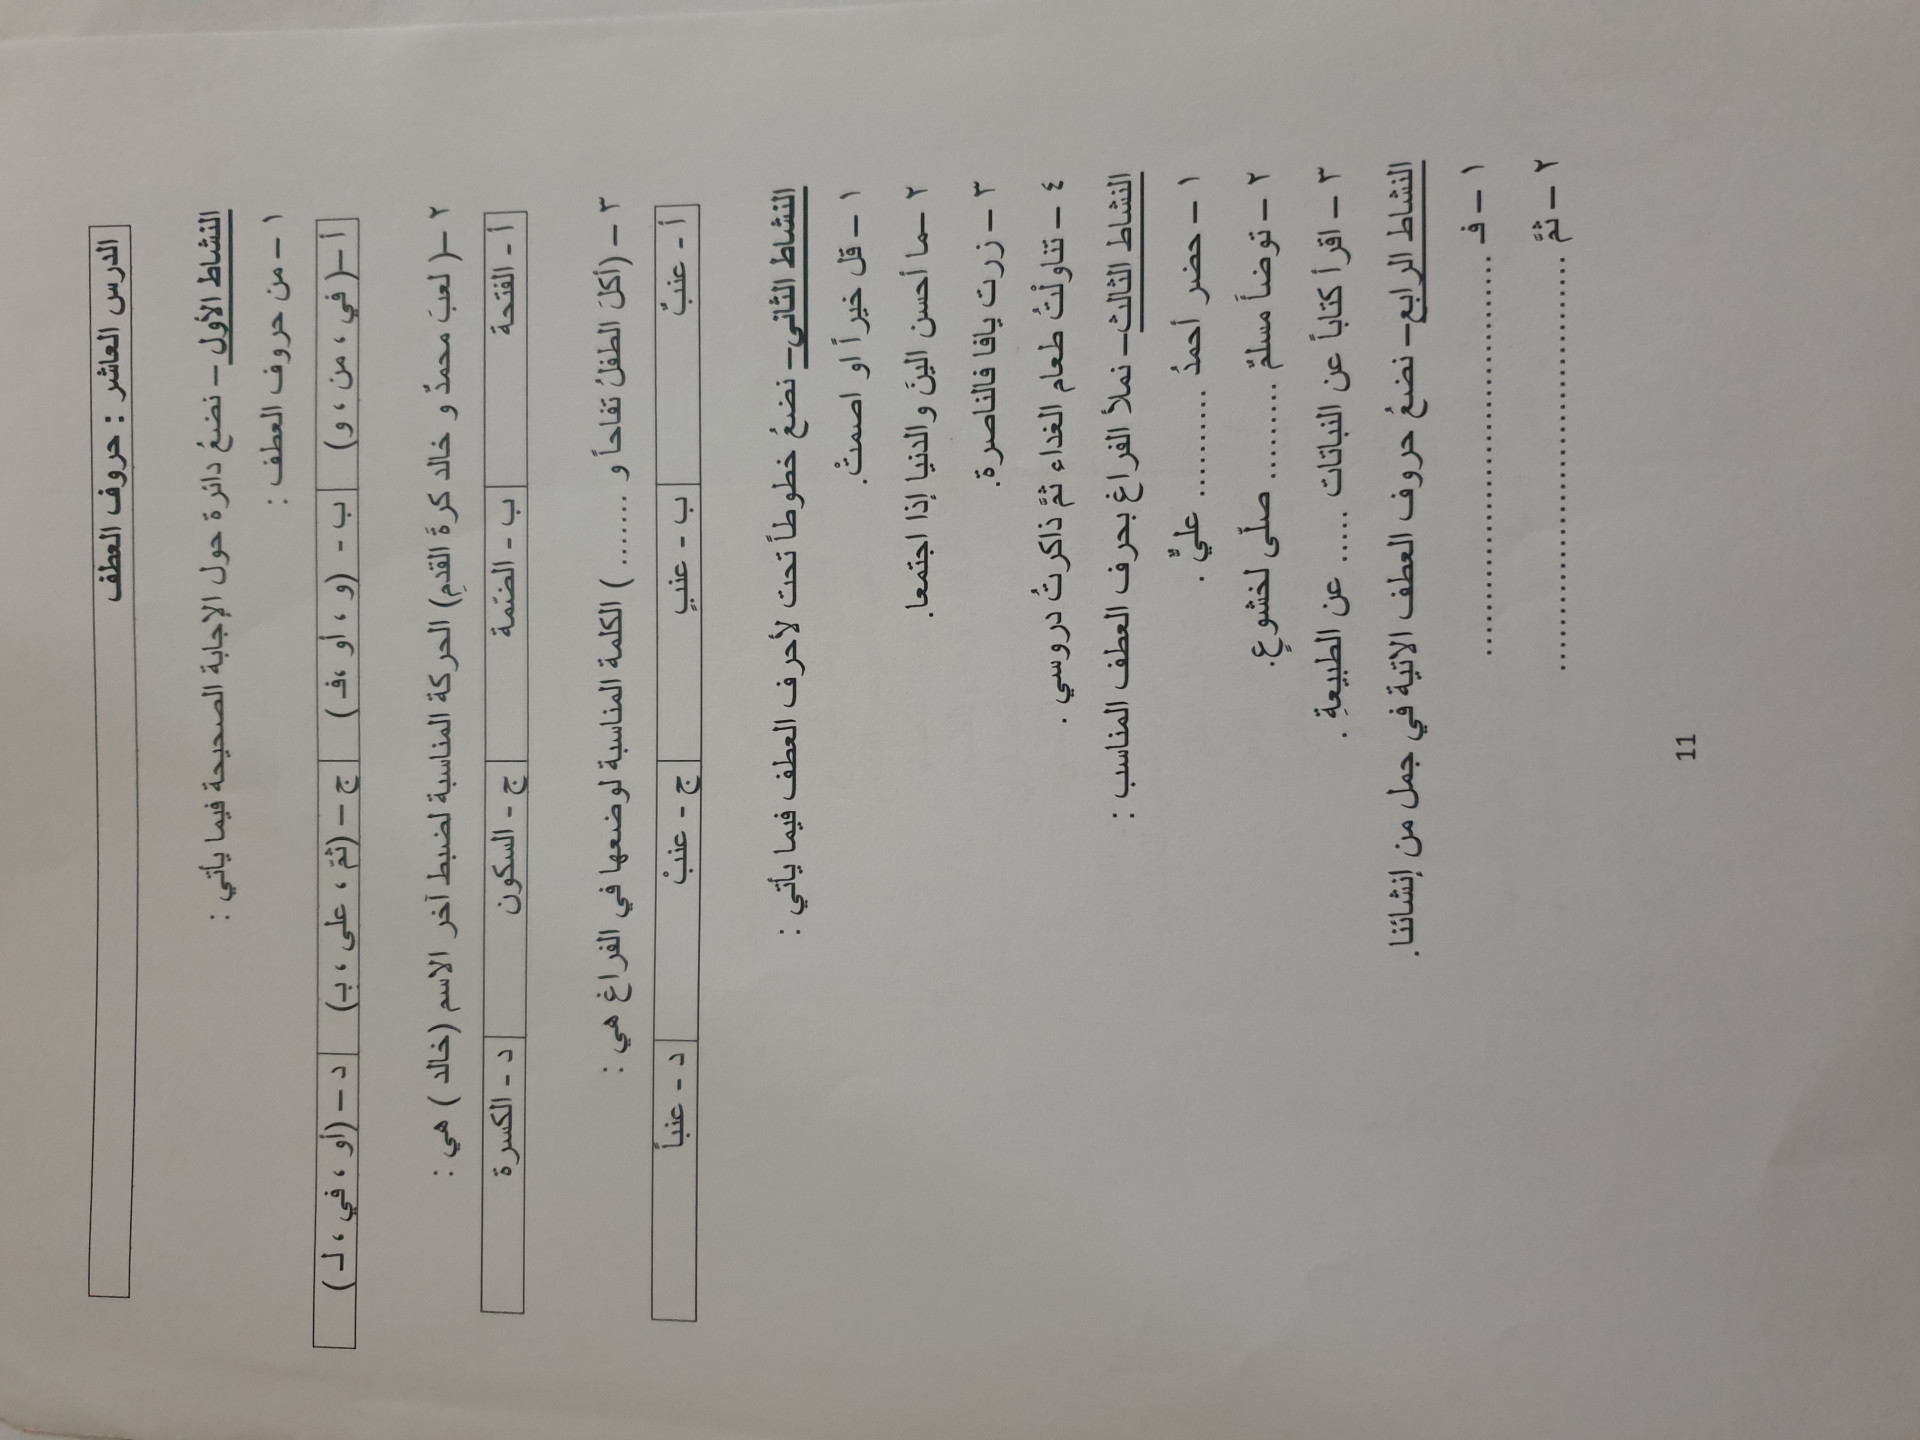 الدرس العاشر : حروف العطف
النشاط الأول – نضعُ دائرة حول الإجابة الصحيحة فيما يأتي :
١ – من حروف العطف :
أ –( في ، من ، و) ب - (و ، أو ،فـ ) ج – (ثمّ ، على ، بـ) د – (أو ، في ، لـ )
٢ –( لعبَ محمدٌ و خالد كرةَ القدمِ) الحركة المناسبة لضبط آخر الاسم (خالد ) هي :
أ - الفتحة ب - الضّمة ج - السكون د - الكسرة
٣ – (أكلَ الطفلُ تفاحاً و ....... ) الكلمة المناسبة لوضعها في الفراغ هي :
أ - عنبٌ ب - عنبٍ ج - عنبْ د - عنباً
النشاط الثاني– نضعُ خطوطاً تحت لأحرف العطف فيما يأتي :
١ – قل خيراً او اصمتْ.
٢ –ما أحسن الينَ والدنيا إذا اجتمعا.
٣ – زرت يافا فالناصرة.
٤ – تناولْتُ طعام الغداء ثمَّ ذاكرتُ دروسي .
النشاط الثالث– نملأ الفراغ بحرف العطف المناسب :
١ – حضر أحمدُ .......... عليٌّ .
٢ – توضأَ مسلمٌ .......... صلّى لخشوعٍ.
٣ – اقرأ كتاباً عن النباتات ...... عن الطبيعةِ .
النشاط الرابع– نضعُ حروف العطف الاتية في جمل من إنشائنا.
١ – فـ ..................................................
٢ – ثمَّ ....................................................
11